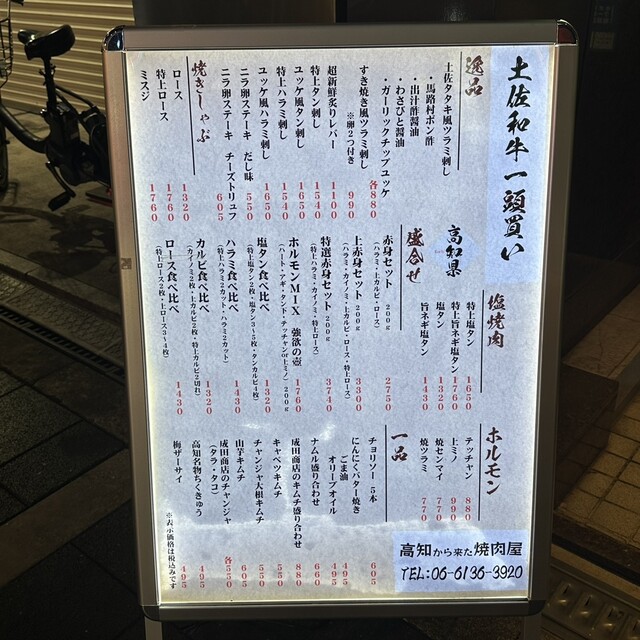 土佐和牛一頭買い
高知県
逸品
土佐タタキ風ツラミ刺し
・馬路村ポン酢
・出汁醤油
・わさびと醤油
・ガーリックチップユッケ
各880
すき焼き風ツラミ刺し
※卵2つ付き
990
超新鮮炙りレバー 1100
特上タン刺し 1540
ユッケ風タン刺し 1650
特上ハラミ刺し 1540
ユッケ風ハラミ刺し 1650
ニラ卵ステーキ だし味 550
ニラ卵ステーキ チーズトリュフ 605
焼きしゃぶ
ロース 1320
特上ロース 1760
ミスジ 1760
塩焼肉
特上塩タン 1650
特上旨ネギ塩タン 1760
塩タン 1320
旨ネギ塩タン 1430
盛合せ
赤身セット 200g
(ハラミ・上カルビ・ロース)
2750
上赤身セット 200g
(上ハラミ・カイノミ・上カルビ・ロース・特上ロース)
3300
特選赤身セット 200g
(特上ハラミ・カイノミ・特上ロース)
3740
ホルモンMIX 強欲の壺 1760
(ハート・アギ・タンド・テッチャンor上ミノ) 200g
塩タン食べ比べ 1320
(特上塩タン2枚・塩タン3〜5枚・タンカルビ4枚)
ハラミ食べ比べ 1430
(特上ハラミ2カット・ハラミ2カット)
カルビ食べ比べ 1320
(カイノミ2枚・上カルビ2枚・特上カルビ2切れ)
ロース食べ比べ 1430
(特上ロース2枚・上ロース3〜4枚)
ホルモン
テッチャン 880
上ミノ 990
焼センマイ 770
焼ツラミ 770
一品
チョリソー 5本 605
にんにくバター焼き 495
ごま油
オリーブオイル 495
ナムル盛り合わせ 660
成田商店のキムチ盛り合わせ 880
キャベツキムチ 550
チャンジャ大根キムチ 550
山芋キムチ 605
成田商店のチャンジャ
(タラ・タコ) 各550
高知名物ちくきゅう 495
梅ザーサイ 495
※表示価格は税込みです
高知から来た焼肉屋
TEL:06-6136-3920